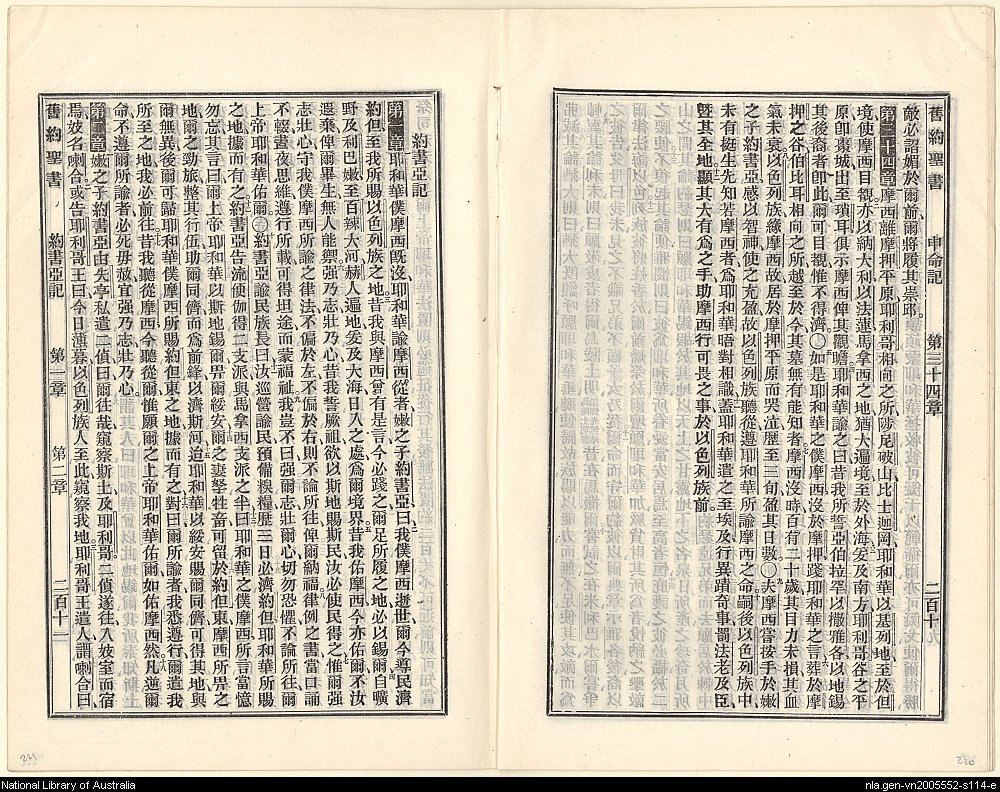 舊約聖書 申命記 第三十四章 二百十
敵必諂媚於爾前、爾將履其崇邱、
第三十四章摩西離摩押平原、耶利哥相向之所、陟尼破山比士迦岡、耶和華以基列地、至於但
境、使摩西目覩、亦以納大利、以法蓮、馬拿西之地、猶大遍境、至於外海、爰及南方、耶利哥谷之平
原、卽棗城、出至瑣耳、俱示摩西、俾其觀瞻、耶和華諭之曰、昔我所誓亞伯拉罕、以撒、雅各、以地錫
其後裔者、卽此、爾可目覩、惟不得濟、〇如是耶和華之僕摩西沒於摩押、踐耶和華之言、葬於摩
押之谷、伯比耳相向之所、越至於今、其墓無有能知者、摩西沒時、百有二十歲、其目力未損、其血
氣未衰、以色列族緣摩西故、居於摩押平原而哭泣、歷至三旬、盈其日數、〇夫摩西嘗按手於嫩
之子約書亞、感以智神、使之充盈、故以色列族聽從、遵耶和華所諭摩西之命、嗣後以色列族中
未有挺生先知若摩西者、爲耶和華晤對相識、蓋耶和華遣之至埃及、行異蹟奇事、罰法老及臣
曁其全地、顯其大有爲之手、助摩西行可畏之事於以色列族前、
約書亞記
第一章耶和華僕摩西旣沒、耶和華諭摩西從者嫩之子約書亞曰、我僕摩西逝世、爾今導民濟
約但、至我所賜以色列族之地、昔我與摩西曾有是言、今必踐之、爾足所履之地、必以錫爾、自曠
野及利巴嫩、至百辣大河、赫人遍地、爰及大海日入之處、爲爾境界、昔我佑摩西、今亦佑爾、不汝
遐棄、俾爾畢生、無人能禦、强乃志、壯乃心、昔我誓厥祖、欲以斯地賜斯民、汝必使民得之、惟爾强
志壯心、守我僕摩西所諭之律法、不偏於左、不偏於右、則不論所往、俾爾納福、律例之書、當口誦
不輟、晝夜思維、遵行所載、可得坦途、而蒙福祉、我豈不曰、强爾志、壯爾心、切勿恐懼、不論所往、爾
上帝耶和華佑爾、〇約書亞諭民族長曰、汝巡營諭民、預備糗糧、歷三日必濟約但、耶和華所賜
之地、據而有之、約書亞告流便、伽得二支派、與馬拿西支派之半曰、耶和華之僕摩西所言、當憶
勿忘、其言曰、爾上帝耶和華以斯地錫爾、畀爾綏安、爾之妻孥牲畜、可留於約但東、摩西所畀之
地、爾之勁旅、整其行伍、助爾同儕、而爲前鋒、以濟斯河、迨耶和華以綏安賜爾同儕、可得其地、與
爾無異、後爾可歸耶和華僕摩西所賜約但東之地、據而有之、對曰、爾所諭者、我悉遵行、爾遣我
所至之地、我必前往、昔我聽從摩西、今聽從爾、惟願爾之上帝耶和華佑爾、如佑摩西然、凡逆爾
命、不遵爾所諭者、必死毋赦、宜强乃志、壯乃心、
第二章嫩之子約書亞、由失亭私遣二偵曰、爾往哉、窺察斯土、及耶利哥、二偵遂往、入妓室而宿
焉、妓名喇合、或告耶利哥王曰、今日薄暮、以色列族人至此、窺察我地、耶利哥王遣人謂喇合曰
舊約聖書 約書亞記 第一章 第二章 二百十一
National Library of Australia
nla.gen-vn2005552-s114-e